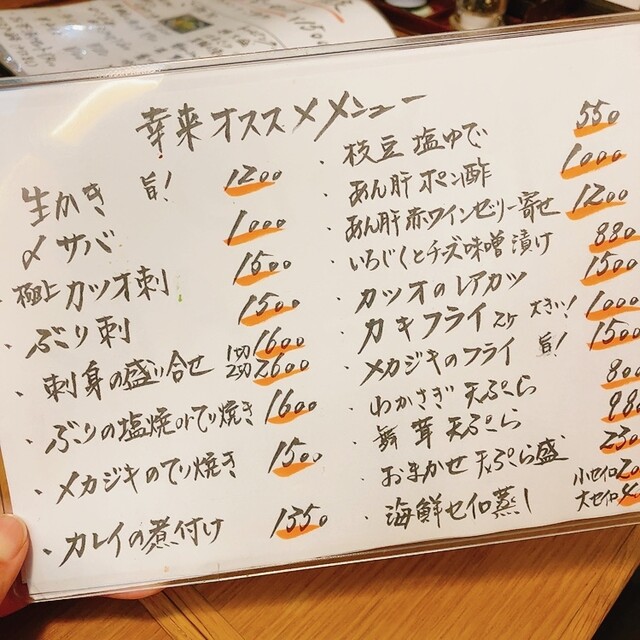 幸来オススメメニュー
生かき 旨! 1200
〆サバ 1000
・極上カツオ刺 1500
・ぶり刺 1500
・刺身の盛り合せ 1切1600 2切2600
・ぶりの塩焼orてり焼き 1600
・メカジキのてり焼き 1500
・カレイの煮付け 1350
・枝豆 塩ゆで 550
・あん肝 ポン酢 1000
・あん肝 赤ワインゼリー寄せ 1200
・いちじくとチーズ味噌漬け 880
・カツオのレアカツ 1500
・カキフライ 大きい! 1000
・メカジキのフライ 旨! 1500
・わかさぎ 天ぷら 800
・舞茸 天ぷら 980
・おまかせ 天ぷら盛
・海鮮セイロ蒸し 小セイロ 大セイロ